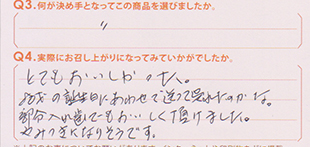 Q3.何が決め手となってこの商品を選びましたか。
〃
Q4.実際にお召し上がりになってみていかがでしたか。
とてもおいしかった。
の誕生日にあわせて送って呉れたのかな。
部分入れ歯でもおいしく頂けました。
やみつきになりそうです。